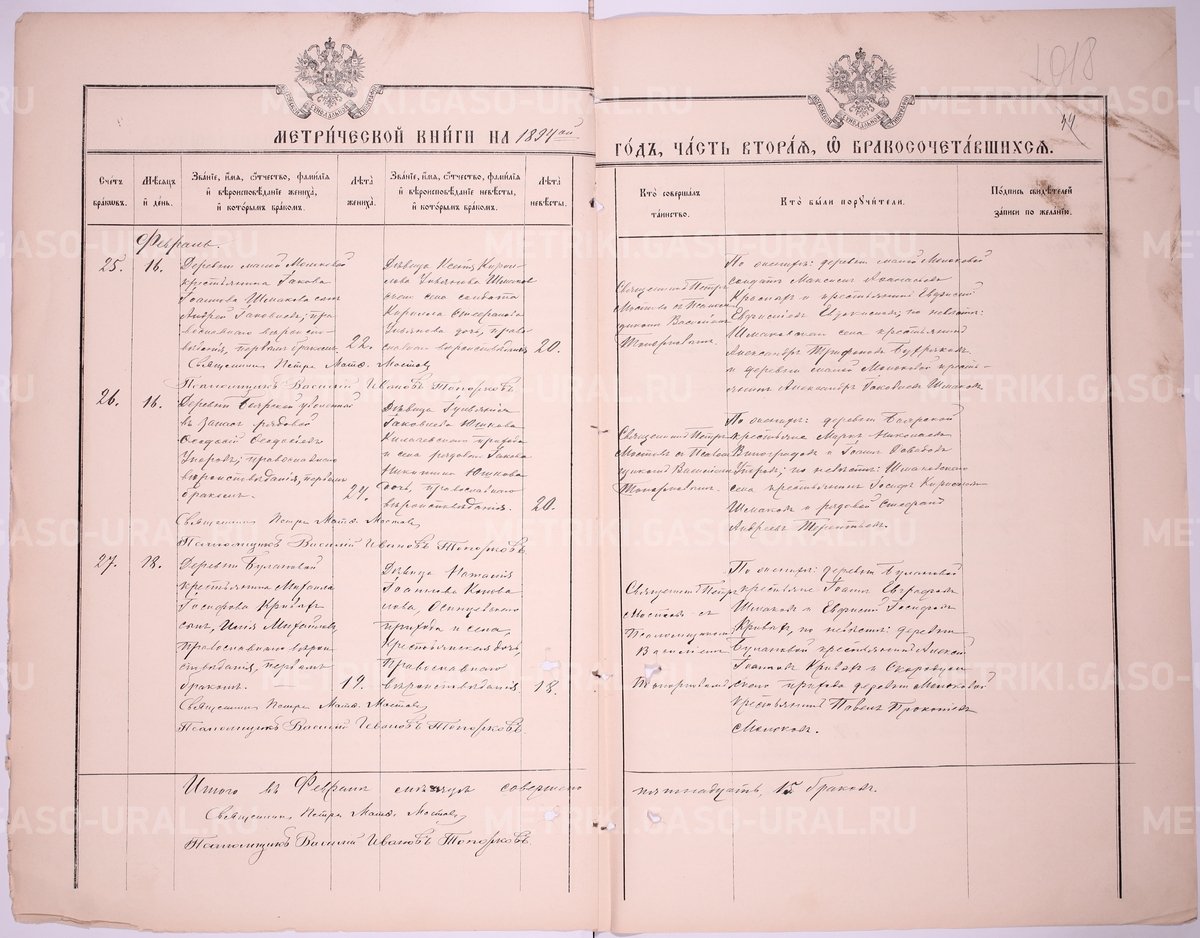 1018
44
МЕТРИ́ЧЕСКОЙ КНИ́ГИ НА 1894 ой
ГО́ДЪ, ЧА́СТЬ ВТОРА́Я, Ѡ БРАКОСОЧЕТА́ВШИХСЯ.
Сче́тъ бра́кωвъ.
Мѣ́сяцъ и҆ де́нь.
Зва́нїе, и҆́мя, ѻ҆́тчество, фами́лїя
и҆ вѣроисповѣ́данїе жениха̀,
и҆ кото́рымъ бра́комъ.
Лѣ́та
жениха̀.
Зва́нїе, и҆́мя, ѻ҆́тчество, фами́лїя
и҆ вѣроисповѣ́данїе невѣ́сты,
и҆ кото́рымъ бра́комъ.
Лѣ́та
невѣ́сты.
Кто̀ соверша́лъ
та́инство.
Кто̀ бы́ли порꙋчи́тели.
По́дпись свидѣ́телей
за́писи по жела́нїю.
Февраль.
25.
16.
Деревни малой Менюковой
крестьянина Iакова
Iоаннова Шмакова сынъ
Андрей Iаковлевъ, пра-
вославнаго вѣроиспо-
вѣданія, первымъ бракомъ.
22.
Дѣвица
Кирил-
лова Ульянова Шмаков-
ской села солдата
Кирилла Стефанова
Ульянова дочь, право-
славнаго вѣроисповѣданія
20.
Священникъ Петръ
Мостовъ съ Псалом-
щикомъ Василіемъ
Топорковымъ.
По женихѣ: деревни малой Менюковой
солдатъ Максимъ
и крестьянинъ Евфимій
по невѣстѣ:
Шмаковской села крестьянинъ
Александръ Трифоновъ
и деревни малой Менюковой кресть-
янинъ Александръ Iаковлевъ Шмаковъ.
Священникъ Петръ Матѳ. Мостовъ
Псаломщикъ Василій Ивановъ Топорковъ
26.
16.
Деревни Боярской уволенный
въ запасъ рядовой
Ѳеодосій Ѳеодосѣевъ
Упоровъ, православнаго
вѣроисповѣданія, первымъ
бракомъ.
27.
Дѣвица
Iаковлева Юшкова
прихода
и села рядоваго Iакова
Никитина Юшкова
дочь, православнаго
вѣроисповѣданія.
20.
Священникъ Петръ
Мостовъ съ Псалом-
щикомъ Василіемъ
Топорковымъ.
По женихѣ: деревни Боярской
крестьяне Маркъ Николаевъ
Виноградовъ и Iоаннъ
Упоровъ; по невѣстѣ: Шмаковскаго
села крестьянинъ Iосифъ Кириловъ
Шмаковъ и рядовой Стефанъ
Андреевъ Терентьевъ.
Священникъ Петръ Матѳ. Мостовъ
Псаломщикъ Василій Ивановъ Топорковъ
27.
18.
Деревни Булановой
крестьянина Михаила
Iосифова Кривыхъ
сынъ, Илія Михайловъ,
Православнаго вѣроис-
повѣданія, первымъ
бракомъ.
19.
Дѣвица Наталія
Iоаннова Конова-
лова, Осинцевскаго
прихода и села,
Крестьянская дочь,
Православнаго
вѣроисповѣданія
18.
Священникъ Петръ
Мостовъ съ
Псаломщикомъ
Василіемъ
Топорковымъ
По женихѣ: деревни Булановой
крестьяне Iоаннъ Евграфовъ
Шмаковъ и Евфимій Iосифовъ
Кривыхъ, по невѣстѣ: деревни
Булановой крестьянинъ Алексѣй
Iоанновъ Кривыхъ и Скородум-
скаго прихода деревни Менюковой
крестьянинъ Павелъ Прокопьевъ
Священникъ Петръ Матѳ. Мостовъ
Псаломщикъ Василій Ивановъ Топорковъ
Итого въ Февралѣ мѣсяцѣ совершено пятнадцать, 15 браковъ.
Священникъ Петръ Матѳ. Мостовъ
Псаломщикъ Василій Ивановъ Топорковъ
METRIKI.GASO-URAL.RU